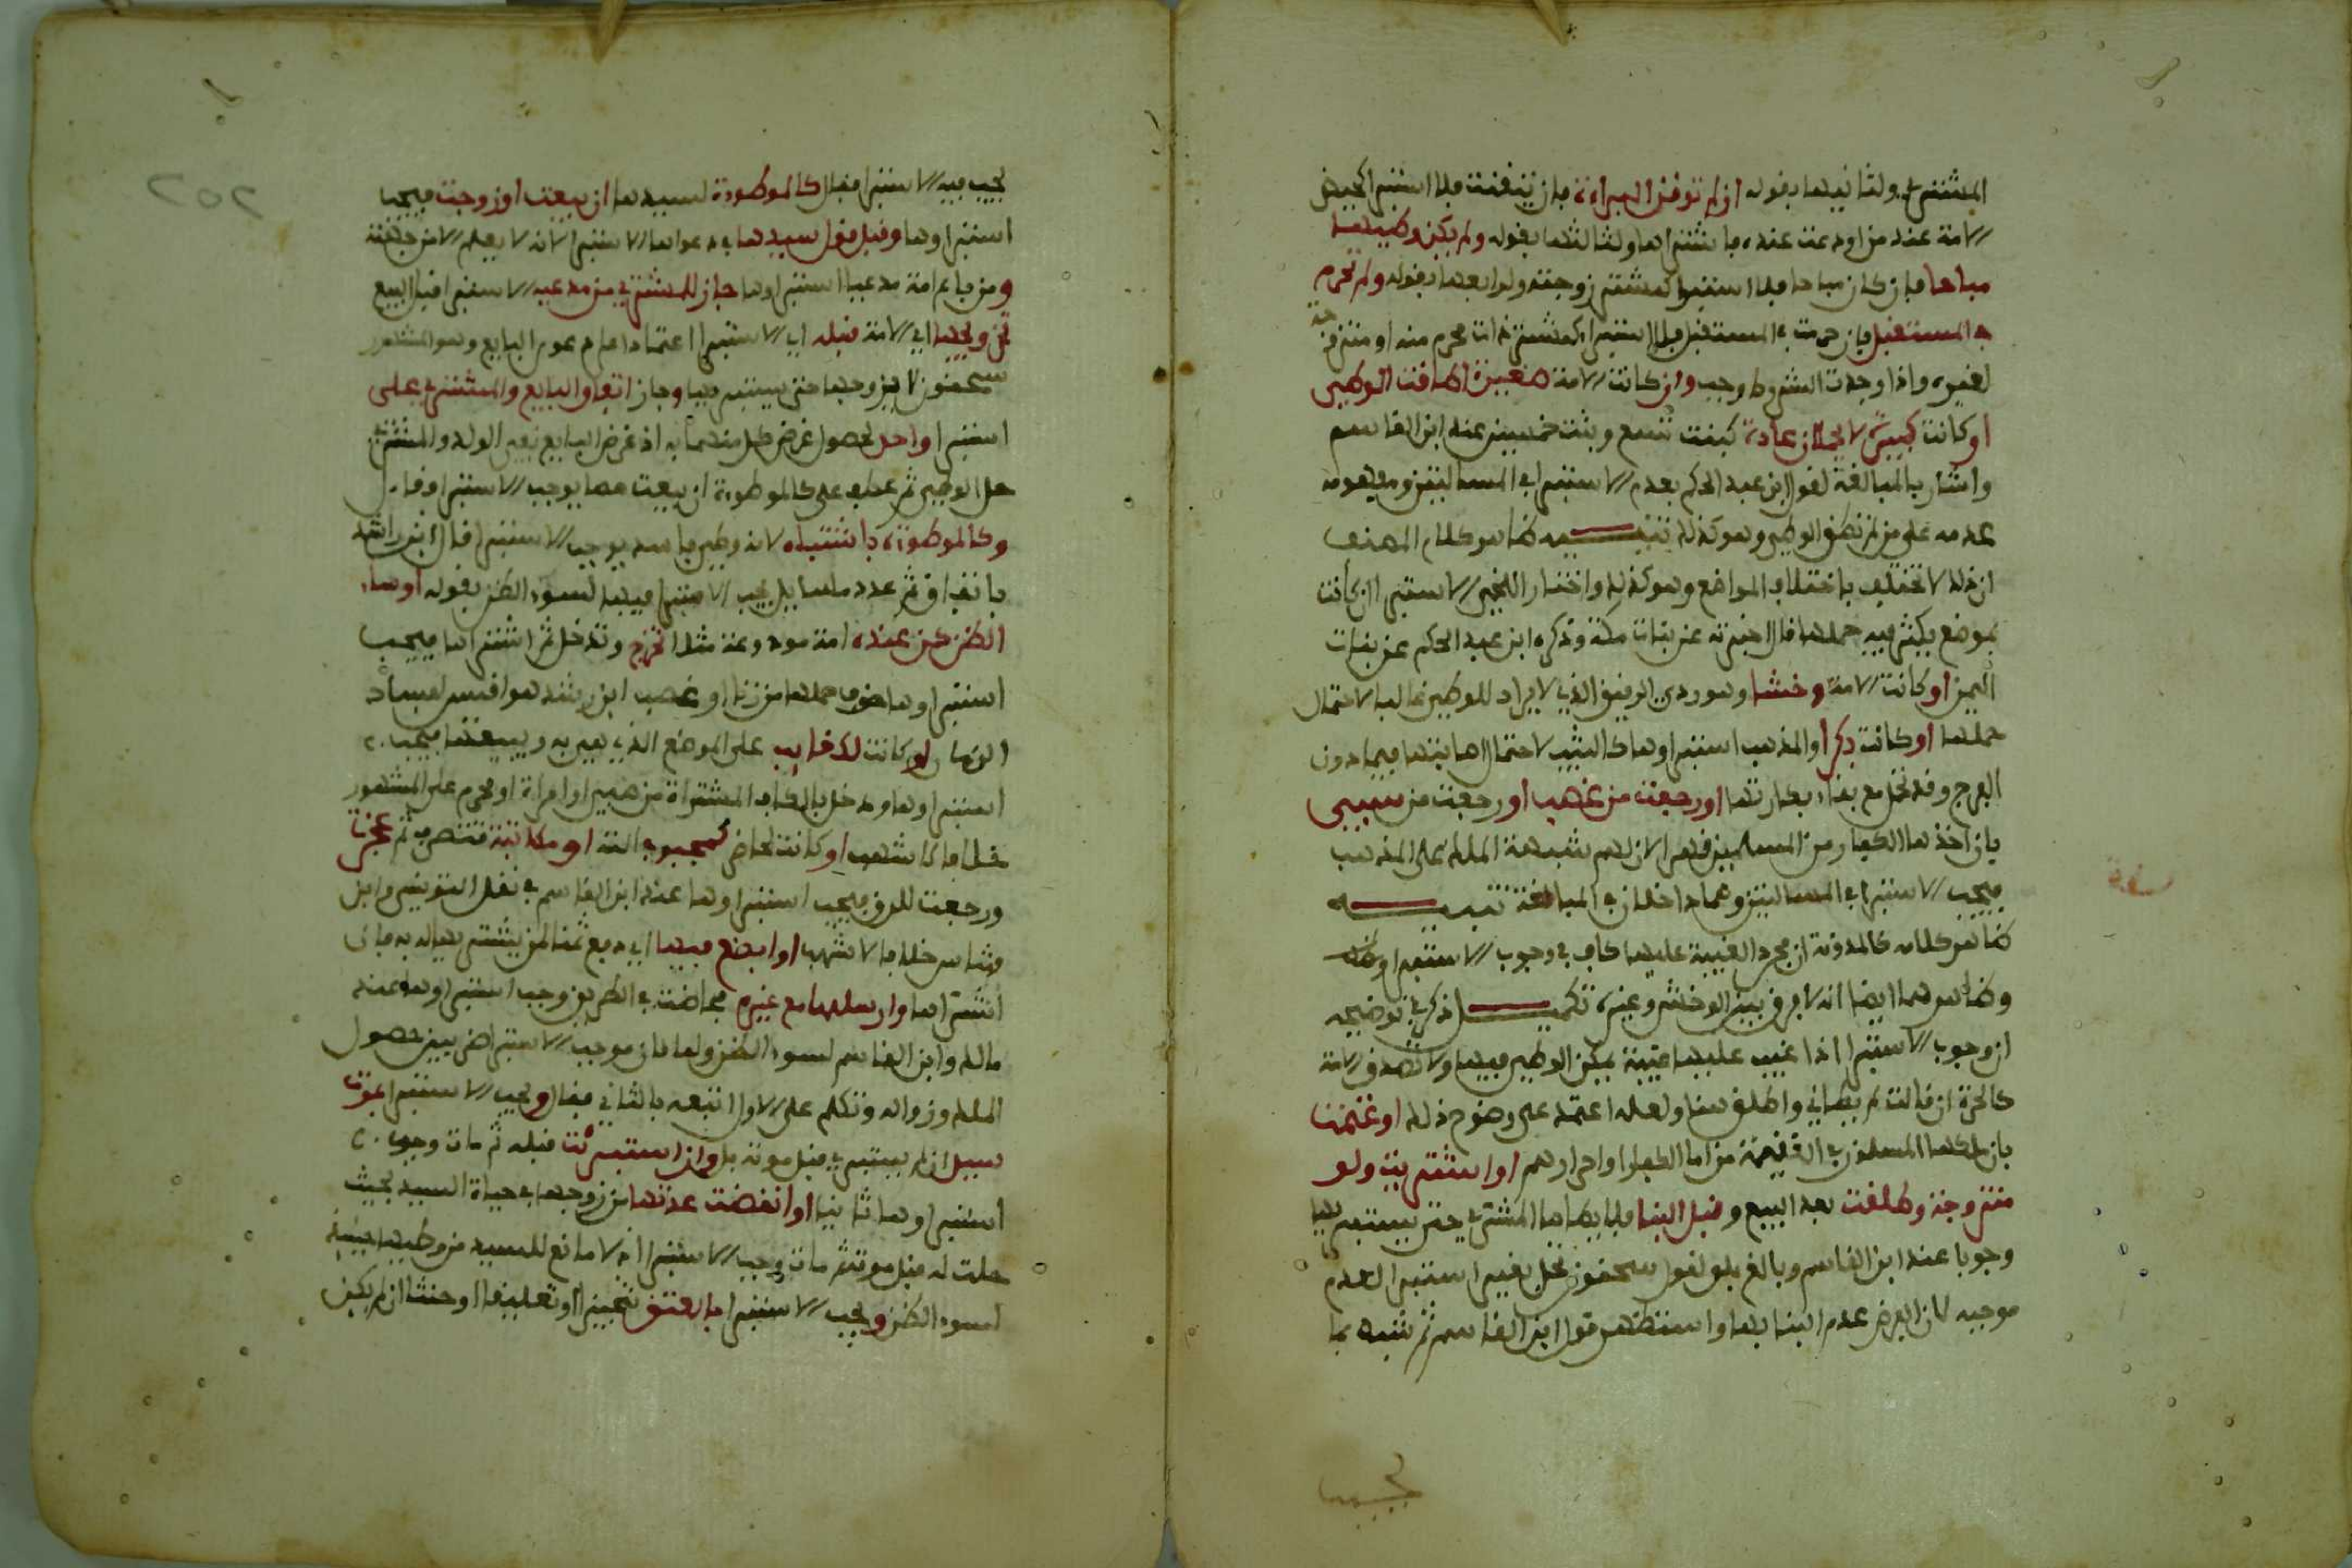 المشتري ولثانيها بقوله ان لم توقن البراءة فان تيقنت فلا استبرا كحيض
الامة عند من اودعت عنده فاشتراها ولثالثها بقوله ولم يكن وطيها
مباحا فان كان مباحا فلا استبرا كمشتر زوجته ولرابعها بقوله ولم تحرم
في المستقبل فان حرمت في المستقبل فلا استبرا كمشتر ذات محرم منه او متزوجة
لغيره واذا وجدت الشروط وجب وان كانت الامة صغيرة اطاقت الوطي
او كانت كبيرة لا يحملان عادة كبنت تسع وبنت خمسين عند ابن القاسم
واشار بالمبالغة لقول ابن عبد الحكم بعدم الاستبرا في المسالتين ومفهومه
عدمه على من لم تطق الوطي وهو كذلك تنبيه ظاهر كلام المصنف
ان ذلك لا يختلف باختلاف المواضع وهو كذلك واختار اللخمي الاستبرا ان كانت
بموضع يكثر فيه حملها قال اخبرته عن بنات مكة وذكره ابن عبد الحكم عن بنات
اليمن او كانت الامة وخشا وهو ردي الرقيق الذي لا يراد للوطي غالبا لاحتمال
حملها او كانت بكرا والمذهب استبراوها كالثيب لاحتمال اصابتها فيما دون
الفرج وقد تحمل مع بقاء بكارتها او رجعت من غصب او رجعت من سبي
بان اخذها الكفار من المسلمين قهرا لان لهم شبهة الملك على المذهب
فيجب الاستبرا في المسالتين وهما داخلان في المبالغة تنبيه
ظاهر كلامه كالمدونة ان مجرد الغيبة عليها كاف في وجوب الاستبرا
وظاهرهما ايضا انه لا فرق بين الوخش وغيره تكميل ذكر في توضيحه
ان وجوب الاستبرا اذا غيب عليها غيبة يمكن الوطي فيها ولا تصدق الامة
كالحرة ان قالت لم يطاني واطلق هنا ولعله اعتمد على وضوح ذلك او غنمت
بان ملكها المسلمون في الغنيمة من اما الكفار او احرارهم او اشتريت ولو
متزوجة وطلقت بعد البيع وقبل البنا فلا يطاها المشتري حتى يستبريها
وجوبا عند ابن القاسم وبالغ بلو لقول سحنون تحل بغير استبرا لعدم
موجبه لان الفرض عدم البنا بها واستظهر قول ابن القاسم ثم شبه بما
يجب
٢٥٢
يجب فيه الاستبرا فقال كالموطوءة لسيدها ان بيعت او زوجت فيجب
استبراوها وقبل قول سيدها في دعواها الاستبرا لانه لا يعلم الا من جهته
ومن باع امة مدعيا استبراوها جاز للمشتري من مدعيه الاستبرا قبل البيع
تزويجها اي الامة قبله اي الاستبرا اعتمادا على دعوى البايع وهو المشهور
سحنون لا يزوجها حتى يستبريها وجاز اتفاق البايع والمشتري على
استبرا واحد لحصول غرض كل منهما به اذ غرض البايع نفي الولد والمشتري
حل الوطي ثم عطف على كالموطوءة ان بيعت مما يوجب الاستبرا وقال
وكالموطوءة باشتباه لانه وطي فاسد يوجب الاستبرا قال ابن راشد
باتفاق ثم عدد مسايل يجب الاستبرا فيها لسوء الظن بقوله او ساء
الظن كمن عنده امة مودوعة مثلا تخرج وتدخل ثم اشتراها فيجب
استبراوها خوف حملها من زنا او غصب ابن رشد هو اقيس لفساد
الزمان او كانت لكغايب على الموضع الذي هي به ويبيعها فيجب
استبراوها ودخل بالكاف المشتراة من صبي او امراة او محرم على المشهور
خلافا لاشهب او كانت لخاصي كمجبوب النة او مكاتبة تتصرف ثم عجزت
ورجعت للرق فيجب استبراوها عند ابن القاسم في نقل التونسي وابن
شاس خلافا لاشهب او ابضع فيها اي دفع ثمنا لمن يشتريها له به فان
اشتراها وارسلها مع غيره فحاضت في الطريق وجب استبراوها عند
مالك وابن القاسم لسوء الظن ولما كان موجب الاستبرا ضربين حصول
الملك وزواله وتكلم على الاول اتبعه بالثاني فقال ويجب الاستبرا بموت
سيد ان لم يستبري قبل موته بل وان استبريت قبله ثم مات وجب
استبراوها ثانيا او انقضت عدتها من زوجها في حياة السيد بحيث
حلت له قبل موته ثم مات وجب الاستبرا اذ لا مانع للسيد من وطيها حينئذ
لسوء الظن ويجب الاستبرا بالعتق تنجيزا او تعليقا او حنثا ان لم يكن